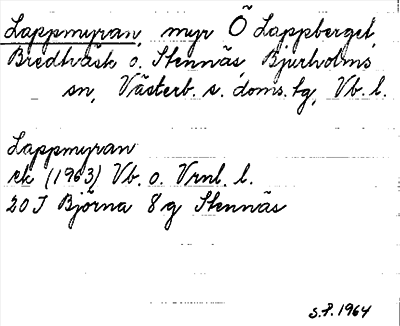 Lappmyran, myr Ö Lappberget,
Bredträsk o. Stennäs, Bjurholms
sn, Västerb. s. doms. tg, Vb. l.
Lappmyran
ek (1963) Vb. o. Vrnl. l.
20 J Björna 8 g Stennäs
S.P. 1964